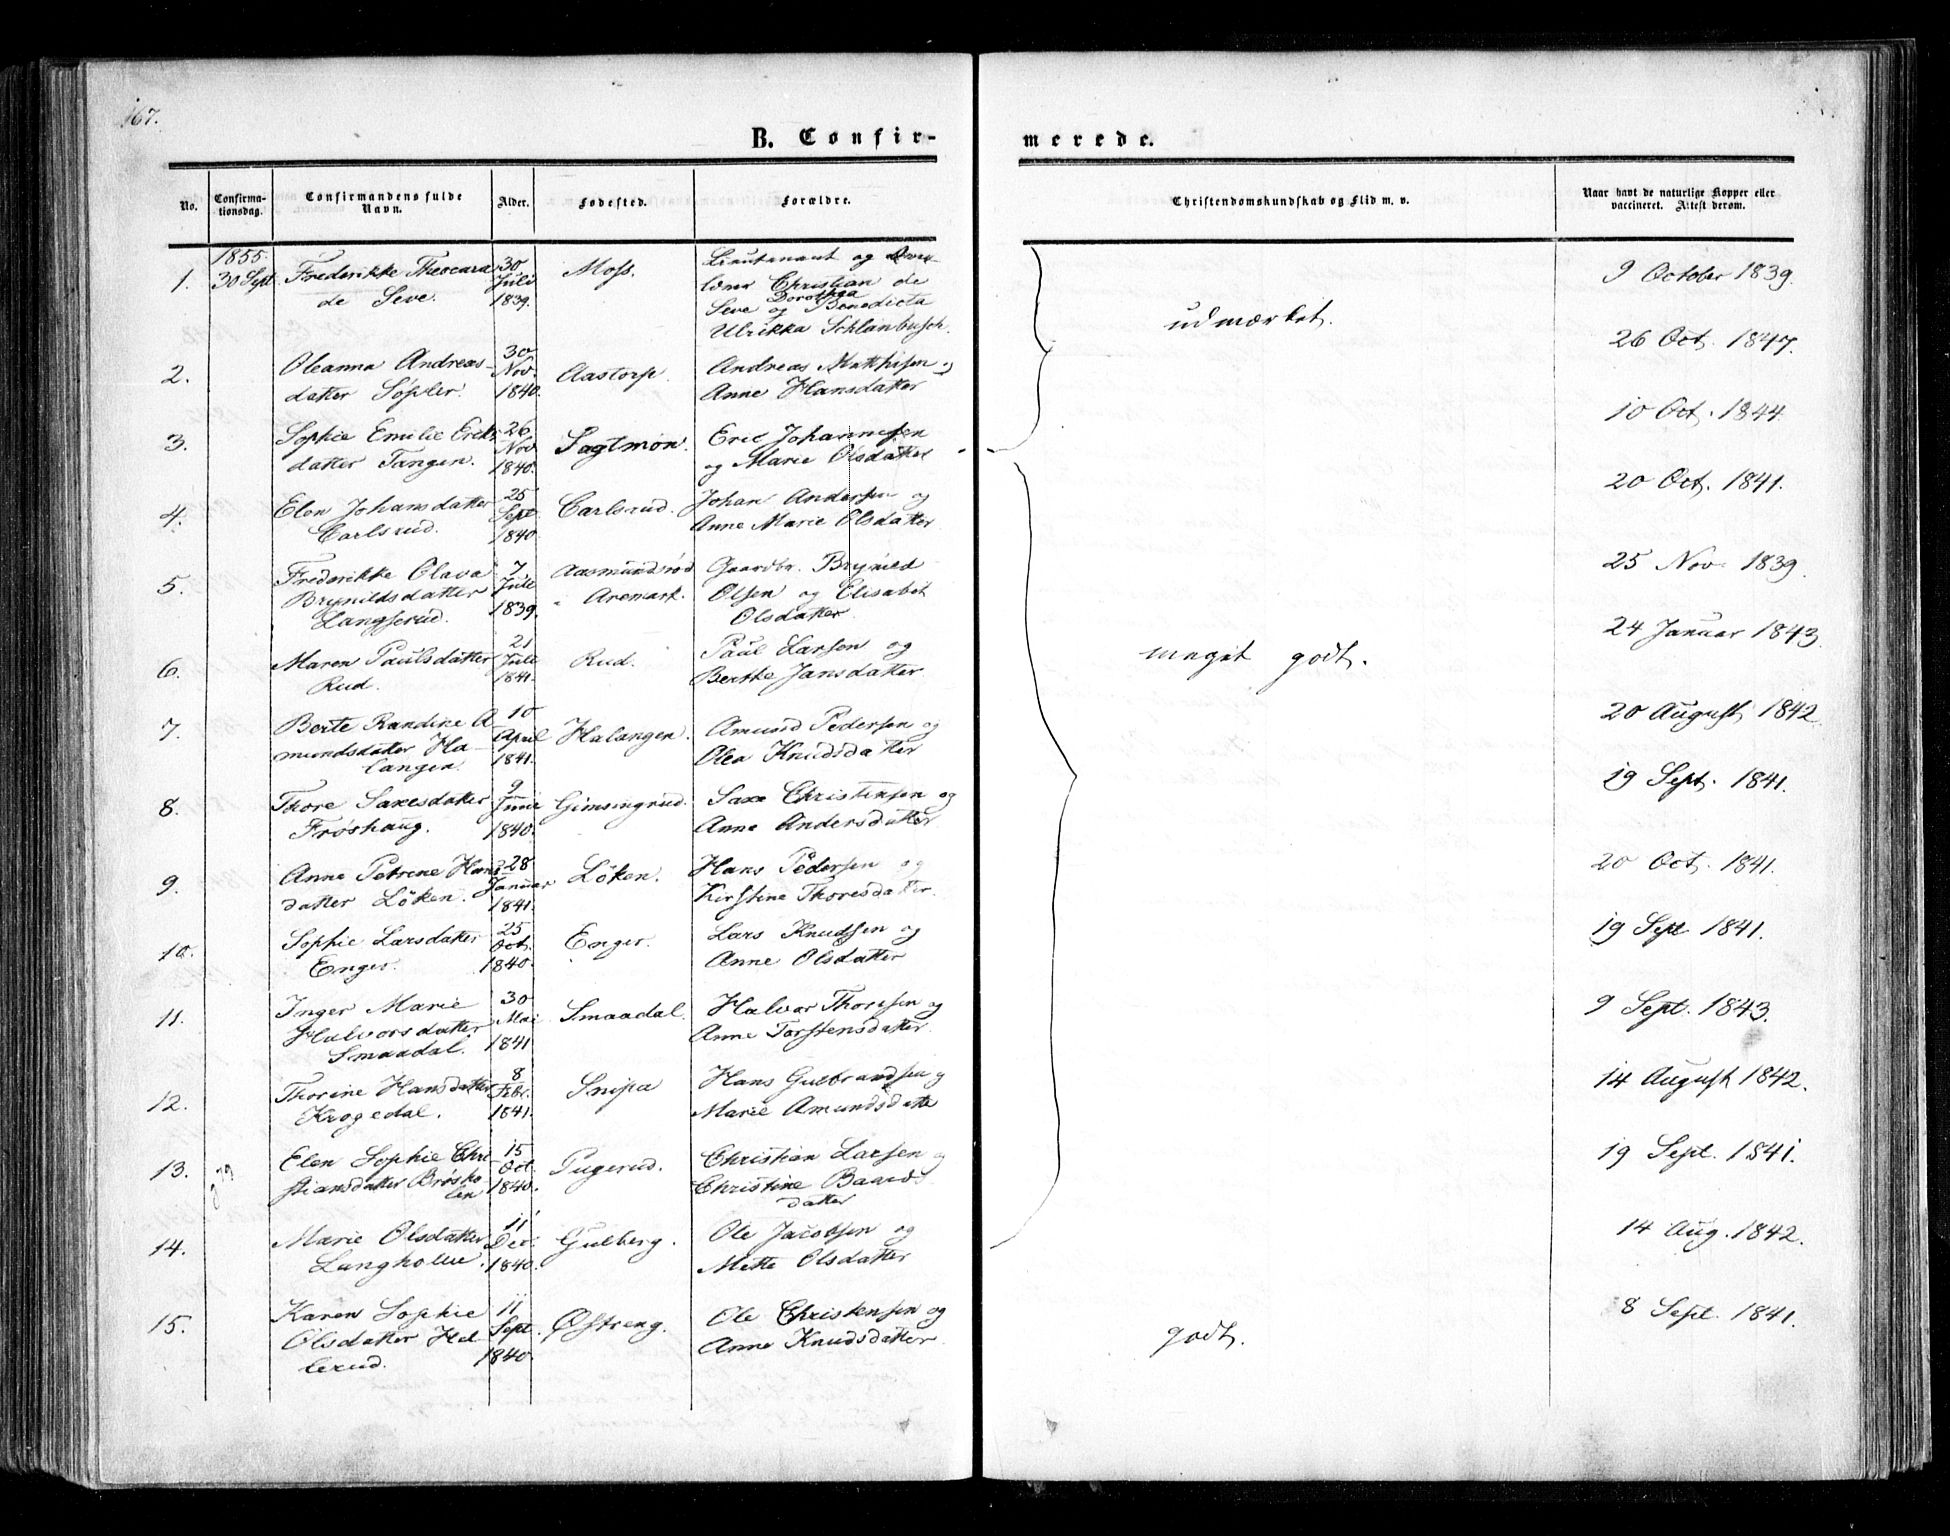 167.
B. Confir-
merede.
No.
Confirma-
tionsdag.
Confirmandens fulde
Navn.
Alder.
Fødested.
Forældre.
Christendomskundskab og Flid m. v.
Naar havt de naturlige Kopper eller
vaccineret. Attest derom.
1855.
1. 30 Sept. Frederikke Theocara 30 Moss. Lieutenant og
de Seve. Juli Christian de
1839. Dorothea
Seve og Benedicta
Ulrikka Schlanbusch.
udmærket.
9 October 1839.
2. Oleanna Andreas- 30 Aastorp. Andreas Matthisen og
datter Søpler. Nov. Anne Hansdatter
1840.
26 Oct. 1847.
3. Sophie Emilie Eriks 26 Sagtmon. Eric Johannesen
datter Tangen. Nov og Marie Olsdatter
1840.
10 Oct. 1844
4. Elen Johansdatter 25 Carlsrud. Johan Andersen og
Carlsrud. Sept Anne Marie Olsdatter
1840
20 Oct. 1841.
5. Frederikke Olava 7 Aasmundsrød Gaardbr. Brynild
Brynildsdatter Juli i Aremark. Olsen og Elisabet
Langserud. 1839. Olsdatter
25 Nov. 1839.
6. Maren Paulsdatter 21 Rud. Paul Larsen og
Rud. Juli Berthe Jansdatter
1841.
meget godt.
24 Januar 1843
7. Berte Randine A 10 Halangen. Amund Pedersen og
mundsdatter Ha- April Olea Knudsdatter
langen. 1841.
20 August 1842.
8. Thore Saxesdatter 9 Gimsingrud. Saxe Christensen og
Frøshaug. Juni Anne Andersdatter
1840.
19 Sept. 1841.
9. Anne Petrene Hans 28 Löken. Hans Pedersen og
datter Löken. Januar Kirstine Thoresdatter.
1841.
20 Oct. 1841.
10. Sophie Larsdatter 25 Enger. Lars Knudsen og
Enger. Oct. Anne Olsdatter
1840.
19 Sept 1841.
11. Inger Marie 30 Smaadal. Halvor Thoresen og
Halvorsdatter Mai Anne Torstensdatter
Smaadal. 1841
9 Sept. 1843.
12. Thorine Hansdatter 8 Snipa Hans Gulbrandsen og
Krogedal. Febr. Marie Amundsdatte
1841.
14 August 1842.
13. Elen Sophie Chri 15 Pugerud. Christian Larsen og
stiansdatter Brøsho Oct Christine Baards
len 1840. datter
19 Sept. 1841.
14. Marie Olsdatter 11 Gulberg. Ole Jacobsen og
Langholm. Dec. Mette Olsdatter
1840.
14 Aug. 1842.
15. Karen Sophie 11 Østreng. Ole Christensen og
Olsdatter Hel Sept. Anne Knudsdatter
lerud. 1840.
godt.
8 Sept. 1841.